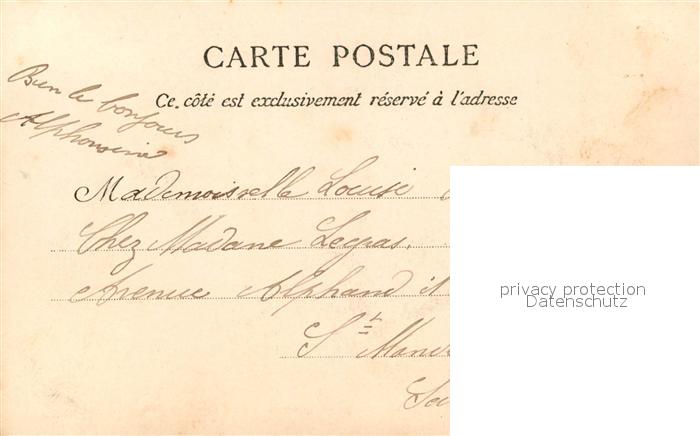 CARTE POSTALE
Ce côté est exclusivement réservé à l'adresse
Bien le bonjour
Alphonsine
Mademoiselle Louise
Chez Madame Legras,
Avenue Alphand
St Man
Se
privacy protection
Datenschutz